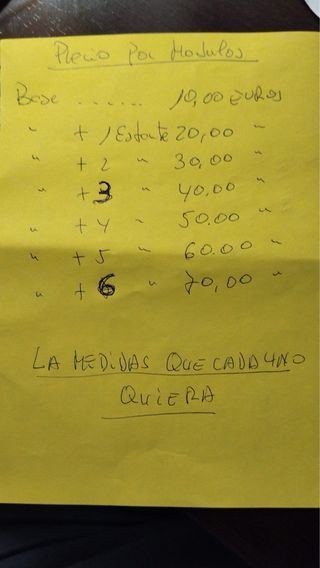 Precio Por Modulos
Base ...... 10,00 EUROS
" + 1 Estante 20,00 "
" + 2 " 30,00 "
" + 3 " 40.00 "
" + 4 " 50.00 "
" + 5 " 60.00 "
" + 6 " 70,00 "
LA MEDIDAS QUE CADA UNO
QUIERA